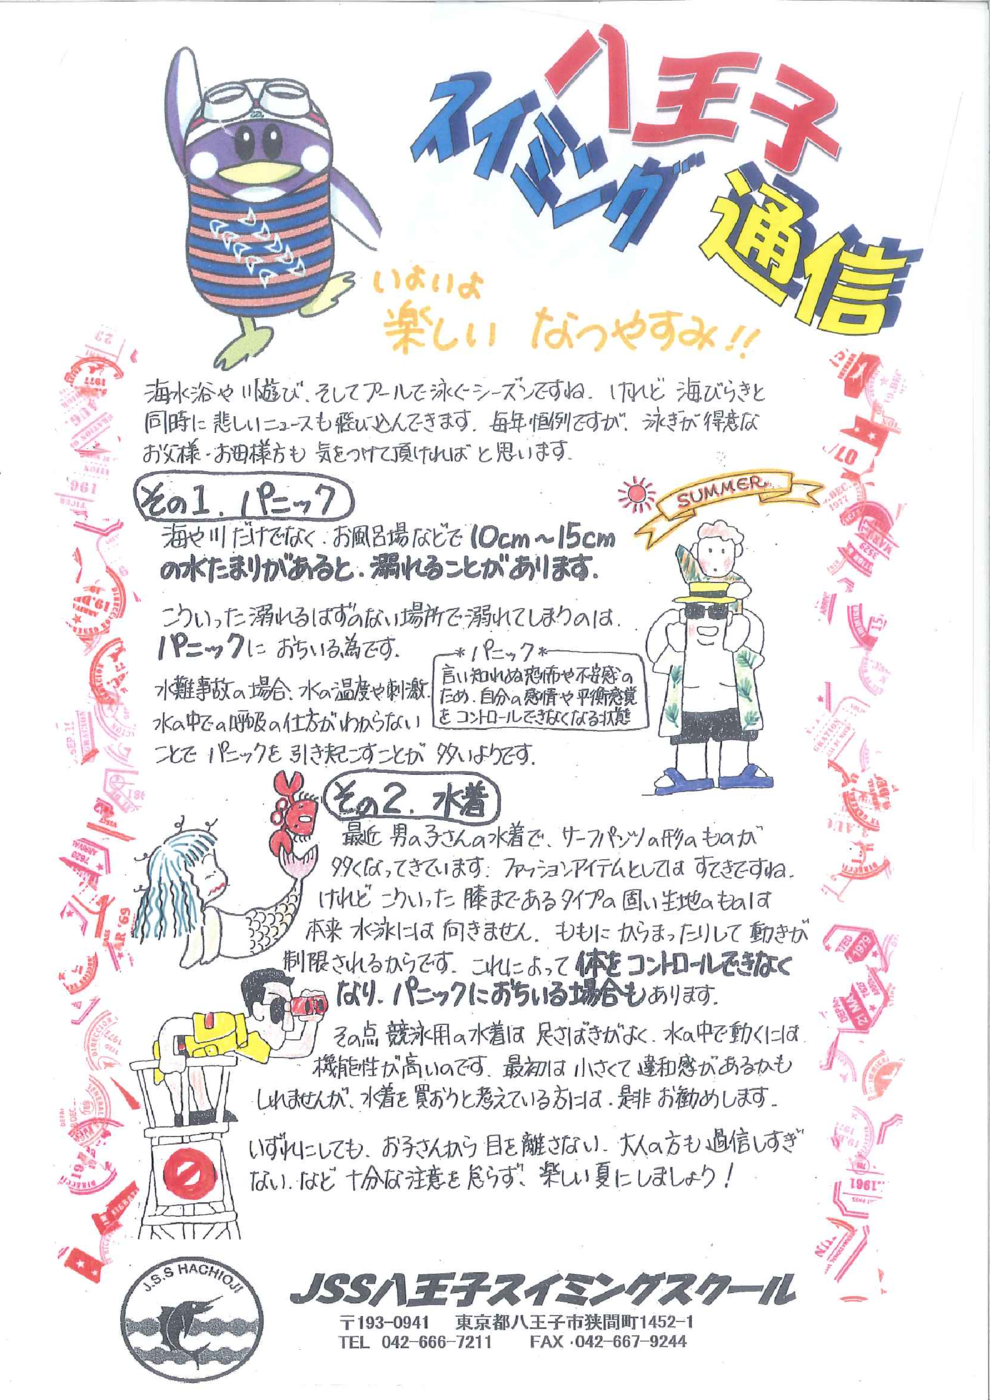 八王子
スイミング
通信
いよいよ
楽しい なつやすみ!!
海水浴や川遊び、そしてプールで泳ぐシーズンですね。けれど 海びらきと
同時に 悲しいニュースも舞い込んできます。毎年恒例ですが、泳ぎが得意な
お父様・お母様方も 気をつけて頂ければ と思います。
その1. パニック
海や川だけでなく、お風呂場などで 10cm～15cm
の水たまりがあると、溺れることがあります。
こういった溺れるはずのない場所で溺れてしまうのは、
パニックに おちいる為です。
*パニック*
言い知れぬ恐怖や不安感の
ため、自分の感情や平衡感覚
をコントロールできなくなる状態
水難事故の場合、水の温度や刺激、
水の中での呼吸の仕方がわからない
ことで パニックを 引き起こすことが 多いようです。
SUMMER
その2. 水着
最近 男の子さんの水着で、サーフパンツの形のものが
多くなってきています。ファッションアイテムとしては すてきですね。
けれど こういった 膝まであるタイプの 固い生地のものは
本来 水泳には 向きません。ももに からまったりして 動きが
制限されるからです。これによって 体を コントロールできなく
なり、パニックにおちいる場合も あります。
その点 競泳用の水着は 足さばきがよく、水の中で動くには
機能性が高いのです。最初は 小さくて 違和感があるかも
しれませんが、水着を買おうと考えている方には、是非 お勧めします。
いずれにしても、お子さんから 目を離さない、大人の方も 過信しすぎ
ない、など 十分な注意を 怠らず、楽しい夏にしましょう!
J.S.S HACHIOJI
JSS八王子スイミングスクール
〒193-0941 東京都八王子市狭間町1452-1
TEL 042-666-7211 FAX・042-667-9244